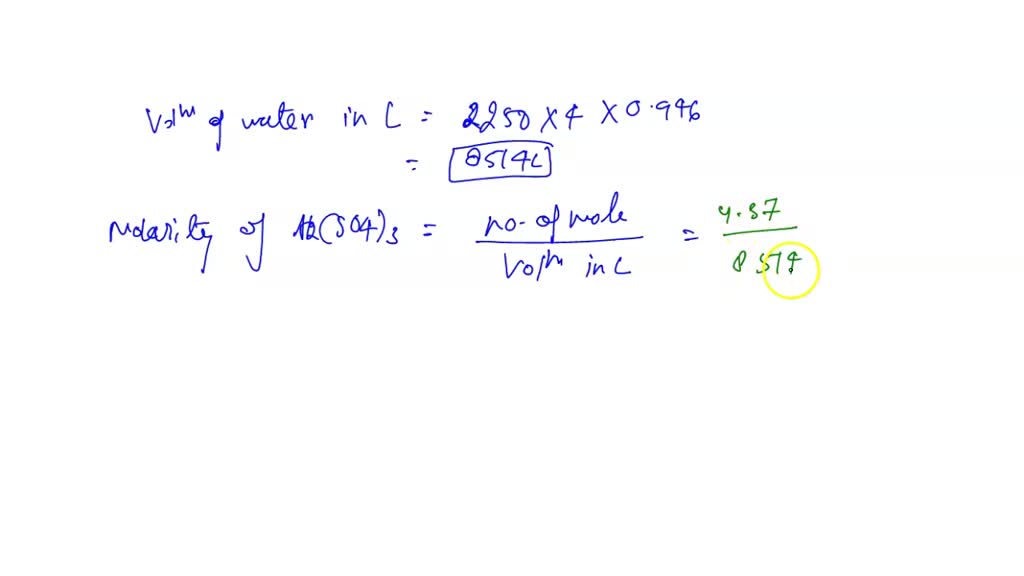 Volm of water in L = 2250 X 4 X 0.946
= 8514L
Molarity of Al2(SO4)3 = no. of mole / Volm in L = 4.37 / 8514